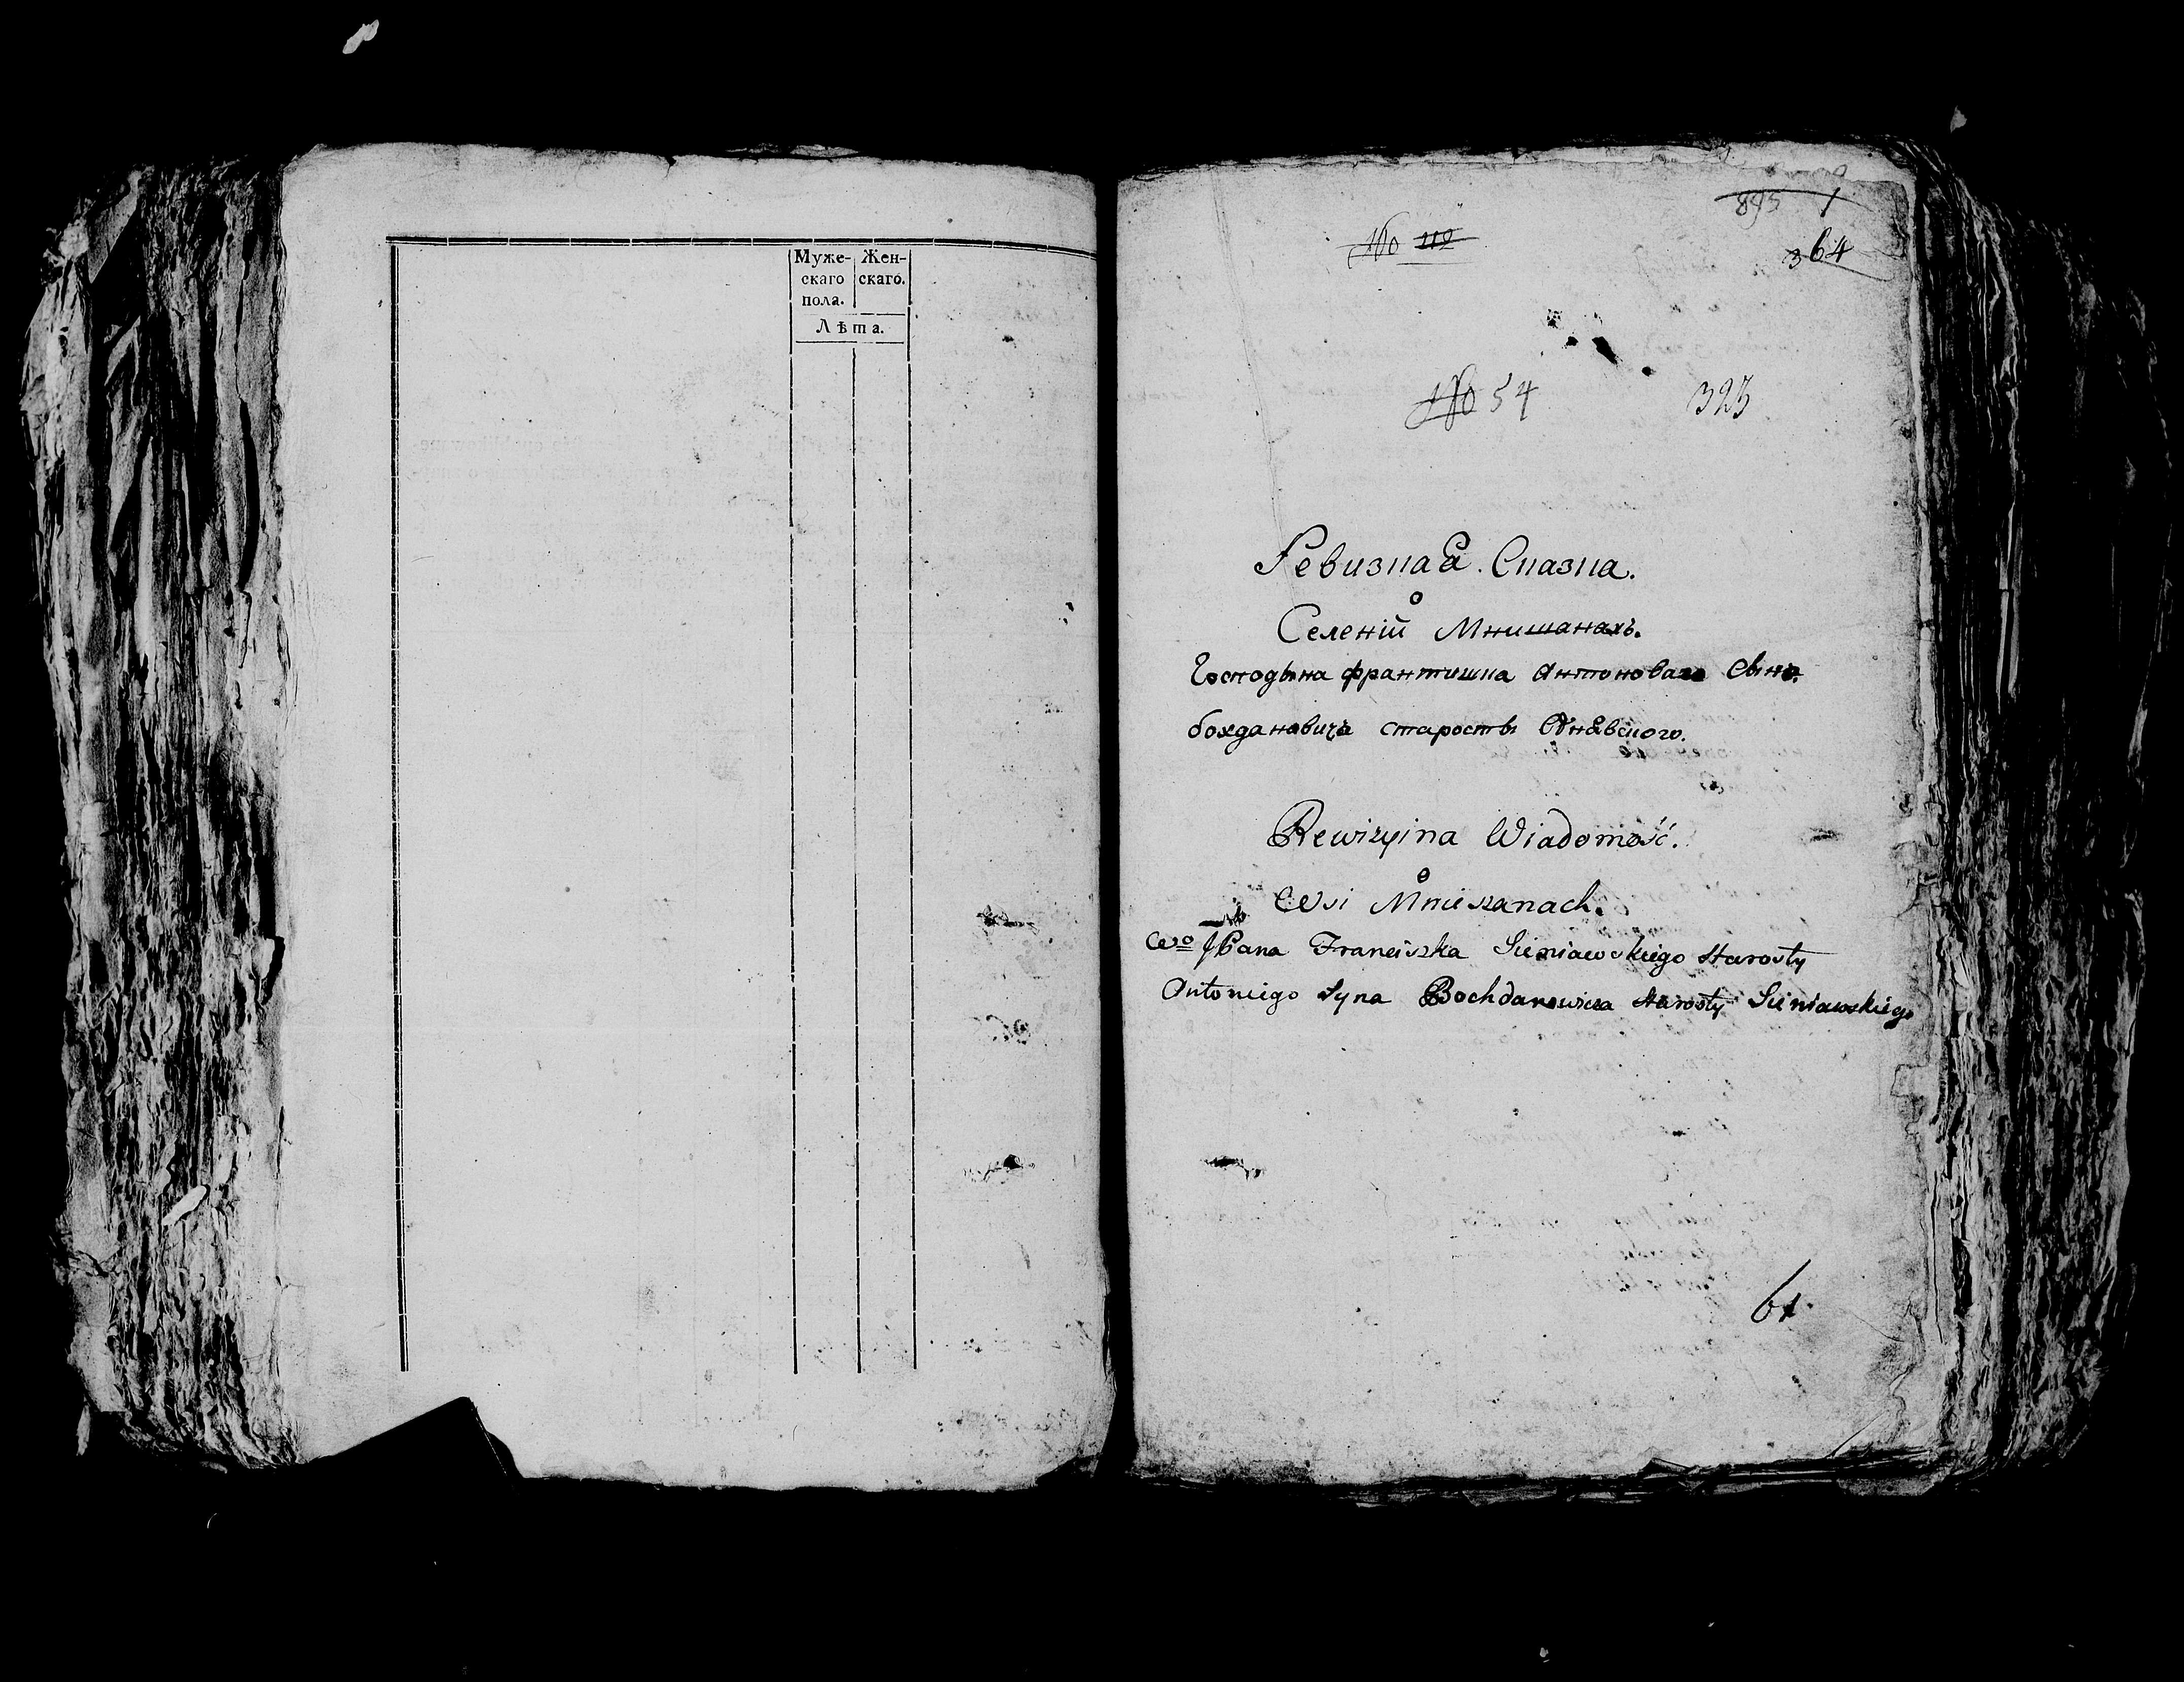 Муже- Жен-
скаго скаго.
пола.
Лѣта.
845 1
No 112
364
No 54 323
Ревизная Сказка.
о
Селеній Мнишанахъ.
Господына франтишка Антоноваго Сына
бохдановича старосты
Rewizyina Wiadomość.
o
Wsi Mnieszanach.
Pana Franciszka Sieniawskiego Starosty
Antoniego Syna Bochdanowicza Starosty Sieniawskiego
61.